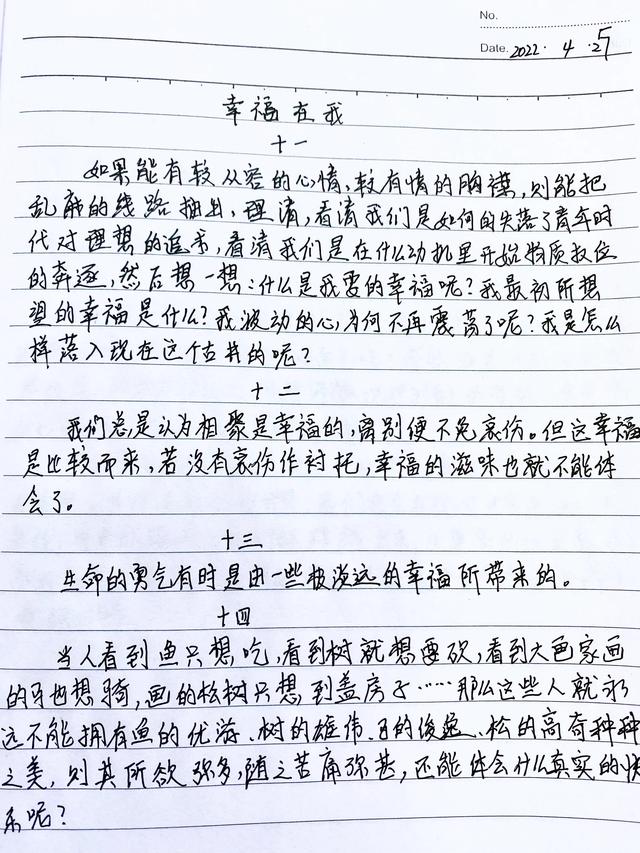 No.
Date. 2022. 4. 25
幸福在我
十一
如果能有较从容的心情、较有情的胸襟,则能把
乱麻的线路抽出、理清,看清我们是如何的失落了青年时
代对理想的追求,看清我们是在什么动机里开始物质权位
的奔逐,然后想一想:什么是我要的幸福呢?我最初所想
望的幸福是什么?我波动的心为何不再震荡了呢?我是怎么
样落入现在这个古井的呢?
十二
我们总是认为相聚是幸福的,离别便不免哀伤。但这幸福
是比较而来,若没有哀伤作衬托,幸福的滋味也就不能体
会了。
十三
生命的勇气有时是由一些极淡远的幸福所带来的。
十四
当人看到鱼只想吃,看到树就想要砍,看到大色家画
的马也想骑,画的松树只想到盖房子……那么这些人就永
远不能拥有鱼的优游、树的雄伟、马的俊逸、松的高奇种种
之美,则其所欲弥多,随之苦痛弥甚,还能体会什么真实的快
乐呢?